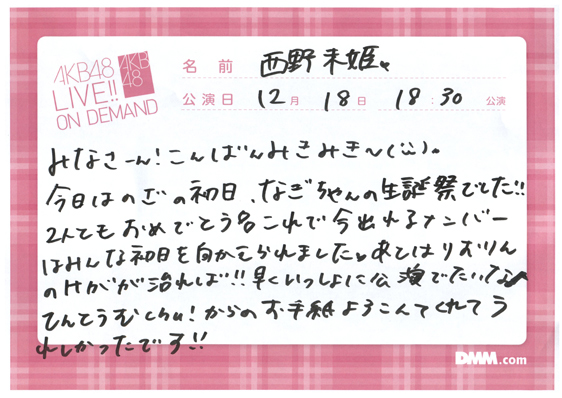 AKB48
LIVE!!
ON DEMAND
AKB
48
名前 西野未姫
公演日 12月 18日 18:30 公演
みなさーん!こんばんみきみき〜
今日はのぞの初日、なぎちゃんの生誕祭でした!!
2人ともおめでとう これで今出れるメンバー
はみんな初日を向かえられました あとはりおりん
のけがが治れば!!早くいっしょに公演でたいな♪
てんとうむChu!からのお手紙よろこんでくれてう
れしかったです!!
DMM.com